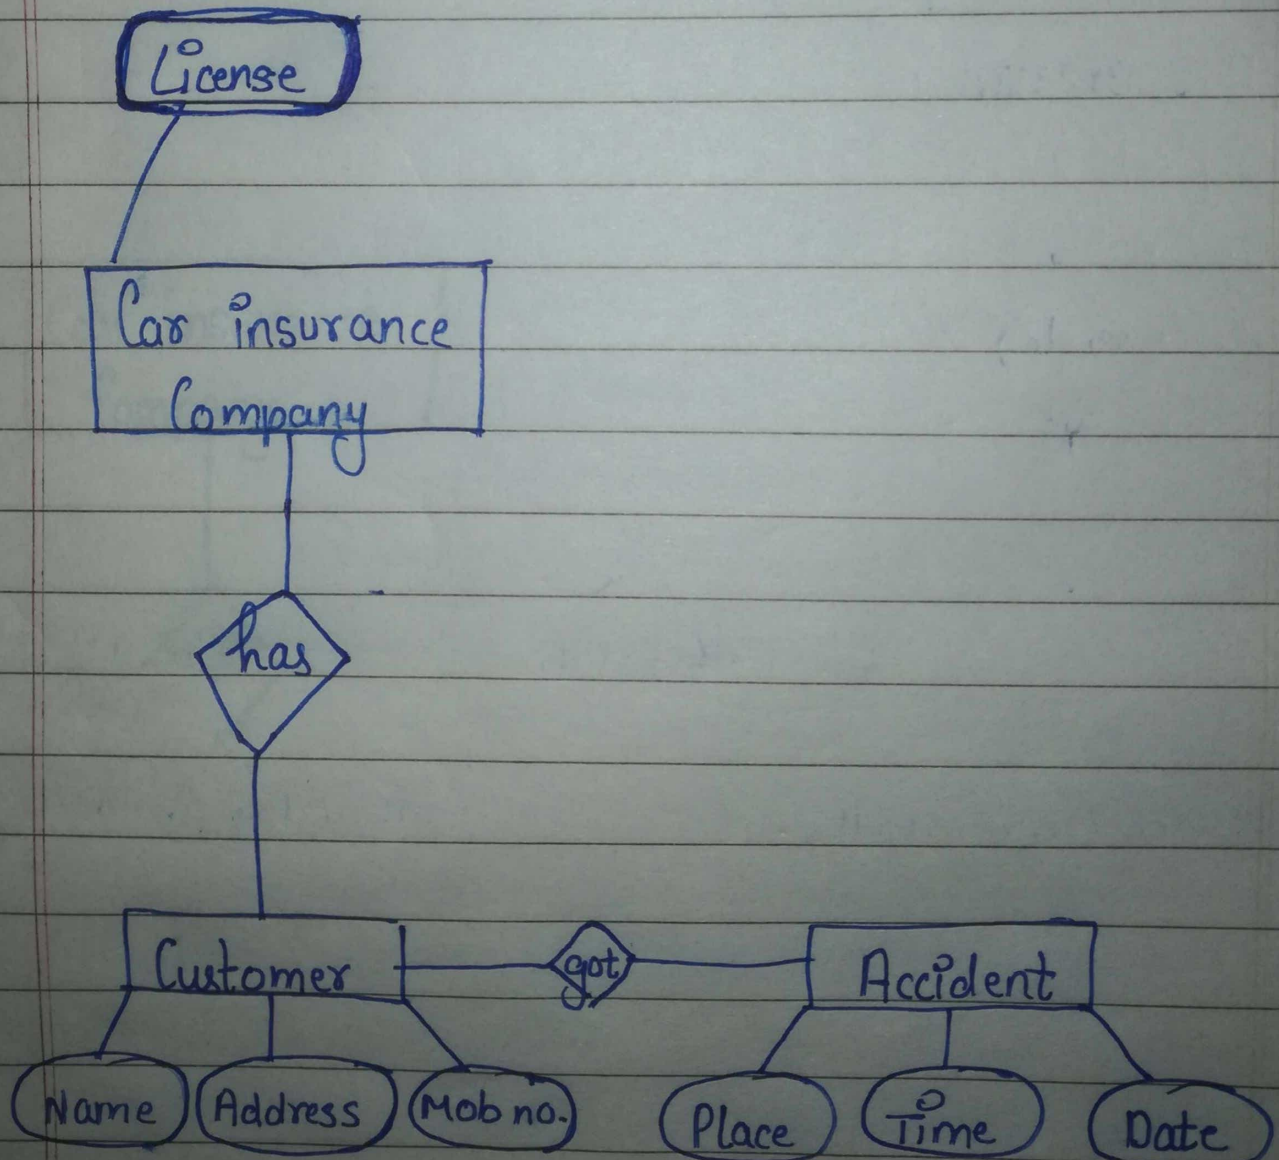 License
Car insurance
Company
has
Customer
got
Accident
Name
Address
Mob no.
Place
Time
Date